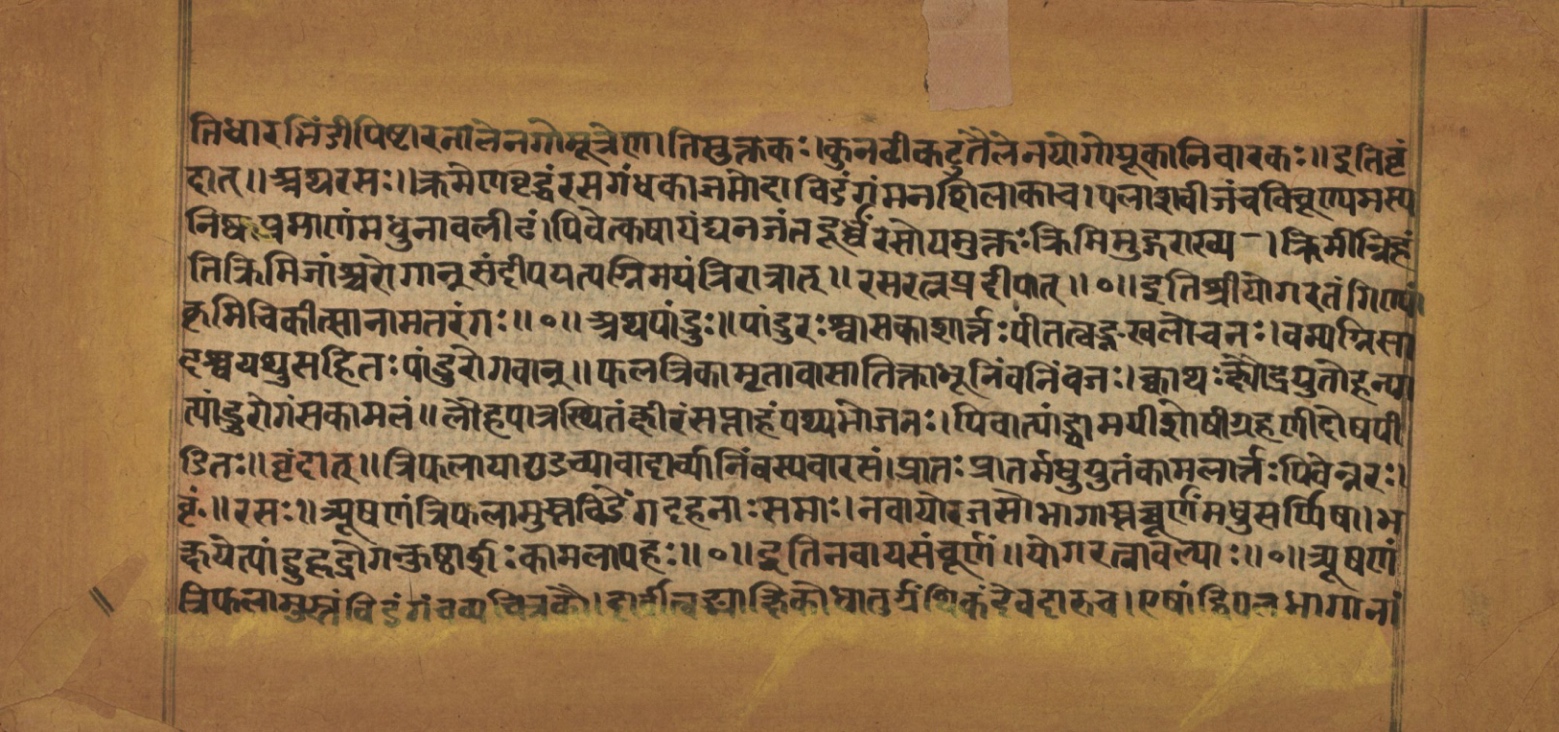 तिधारभिंडीपिष्टारनालेनगोमूत्रेण।तिस्तुक्तकः।कुनटीकटुतैलेनयोगोयूकानिवारकः॥इतिवृं
दात्॥अथरसः॥क्रमेणवृद्धंरसगंधकाजमोदाविडंगंमनशिलाकाच।पलाशबीजंचविचूर्ण्यमस्य
निष्कप्रमाणंमधुनावलीढं।पिवेत्कषायंघनजंतदूर्ध्वंरसोयमुक्तःक्रिमिमुद्गराख्य-।क्रिमीन्निहं
तिक्रिमिजांश्चरोगान्संदीपयत्यग्निमयंत्रिरात्रात्॥रसरत्नप्रदीपात्॥०॥इतिश्रीयोगरतंगिण्यां
कृमिचिकीत्सानामतरंगः॥०॥अथपांडुः॥पांडुरःश्वासकाशार्त्तःपीतत्वङ्नखलोचनः।वम्यग्निसा
दश्वयथुसहितःपांडुरोगवान्॥फलत्रिकामृतावासातिक्ताभूनिंवनिंवजः।क्वाथःक्षौद्रयुतोहन्या
त्पांडुरोगंसकामलं॥लौहपात्रस्थितंक्षीरंसप्ताहंपथ्यभोजनः।पिवात्पांड्वामयीशोषीग्रहणीदोषपी
डितः॥वृंदात्॥त्रिफलायागुडच्यावादार्व्यानिंवस्यवारसं।प्रातःप्रातर्मधुयुतंकामलार्त्तःपिवेन्नरः।
वृं॥रसः॥त्र्यूषणंत्रिफलामुस्तविडंगदहनाःसमाः।नवायोरजसोभागास्तच्चूर्णंमधुसर्प्पिषा।भ
क्षयेत्पांडुहृद्रोगकुष्ठार्शःकामलापहः॥०॥इतिनवायसंचूर्णं॥योगरत्नावल्याः॥०॥त्र्यूषणं
त्रिफलामुस्तंविडंगंचव्यचित्रकौ।दार्वीत्वङ्माक्षिकोधातुर्ग्रंथिकंदेवदारुच।एषांद्विपलभागानां